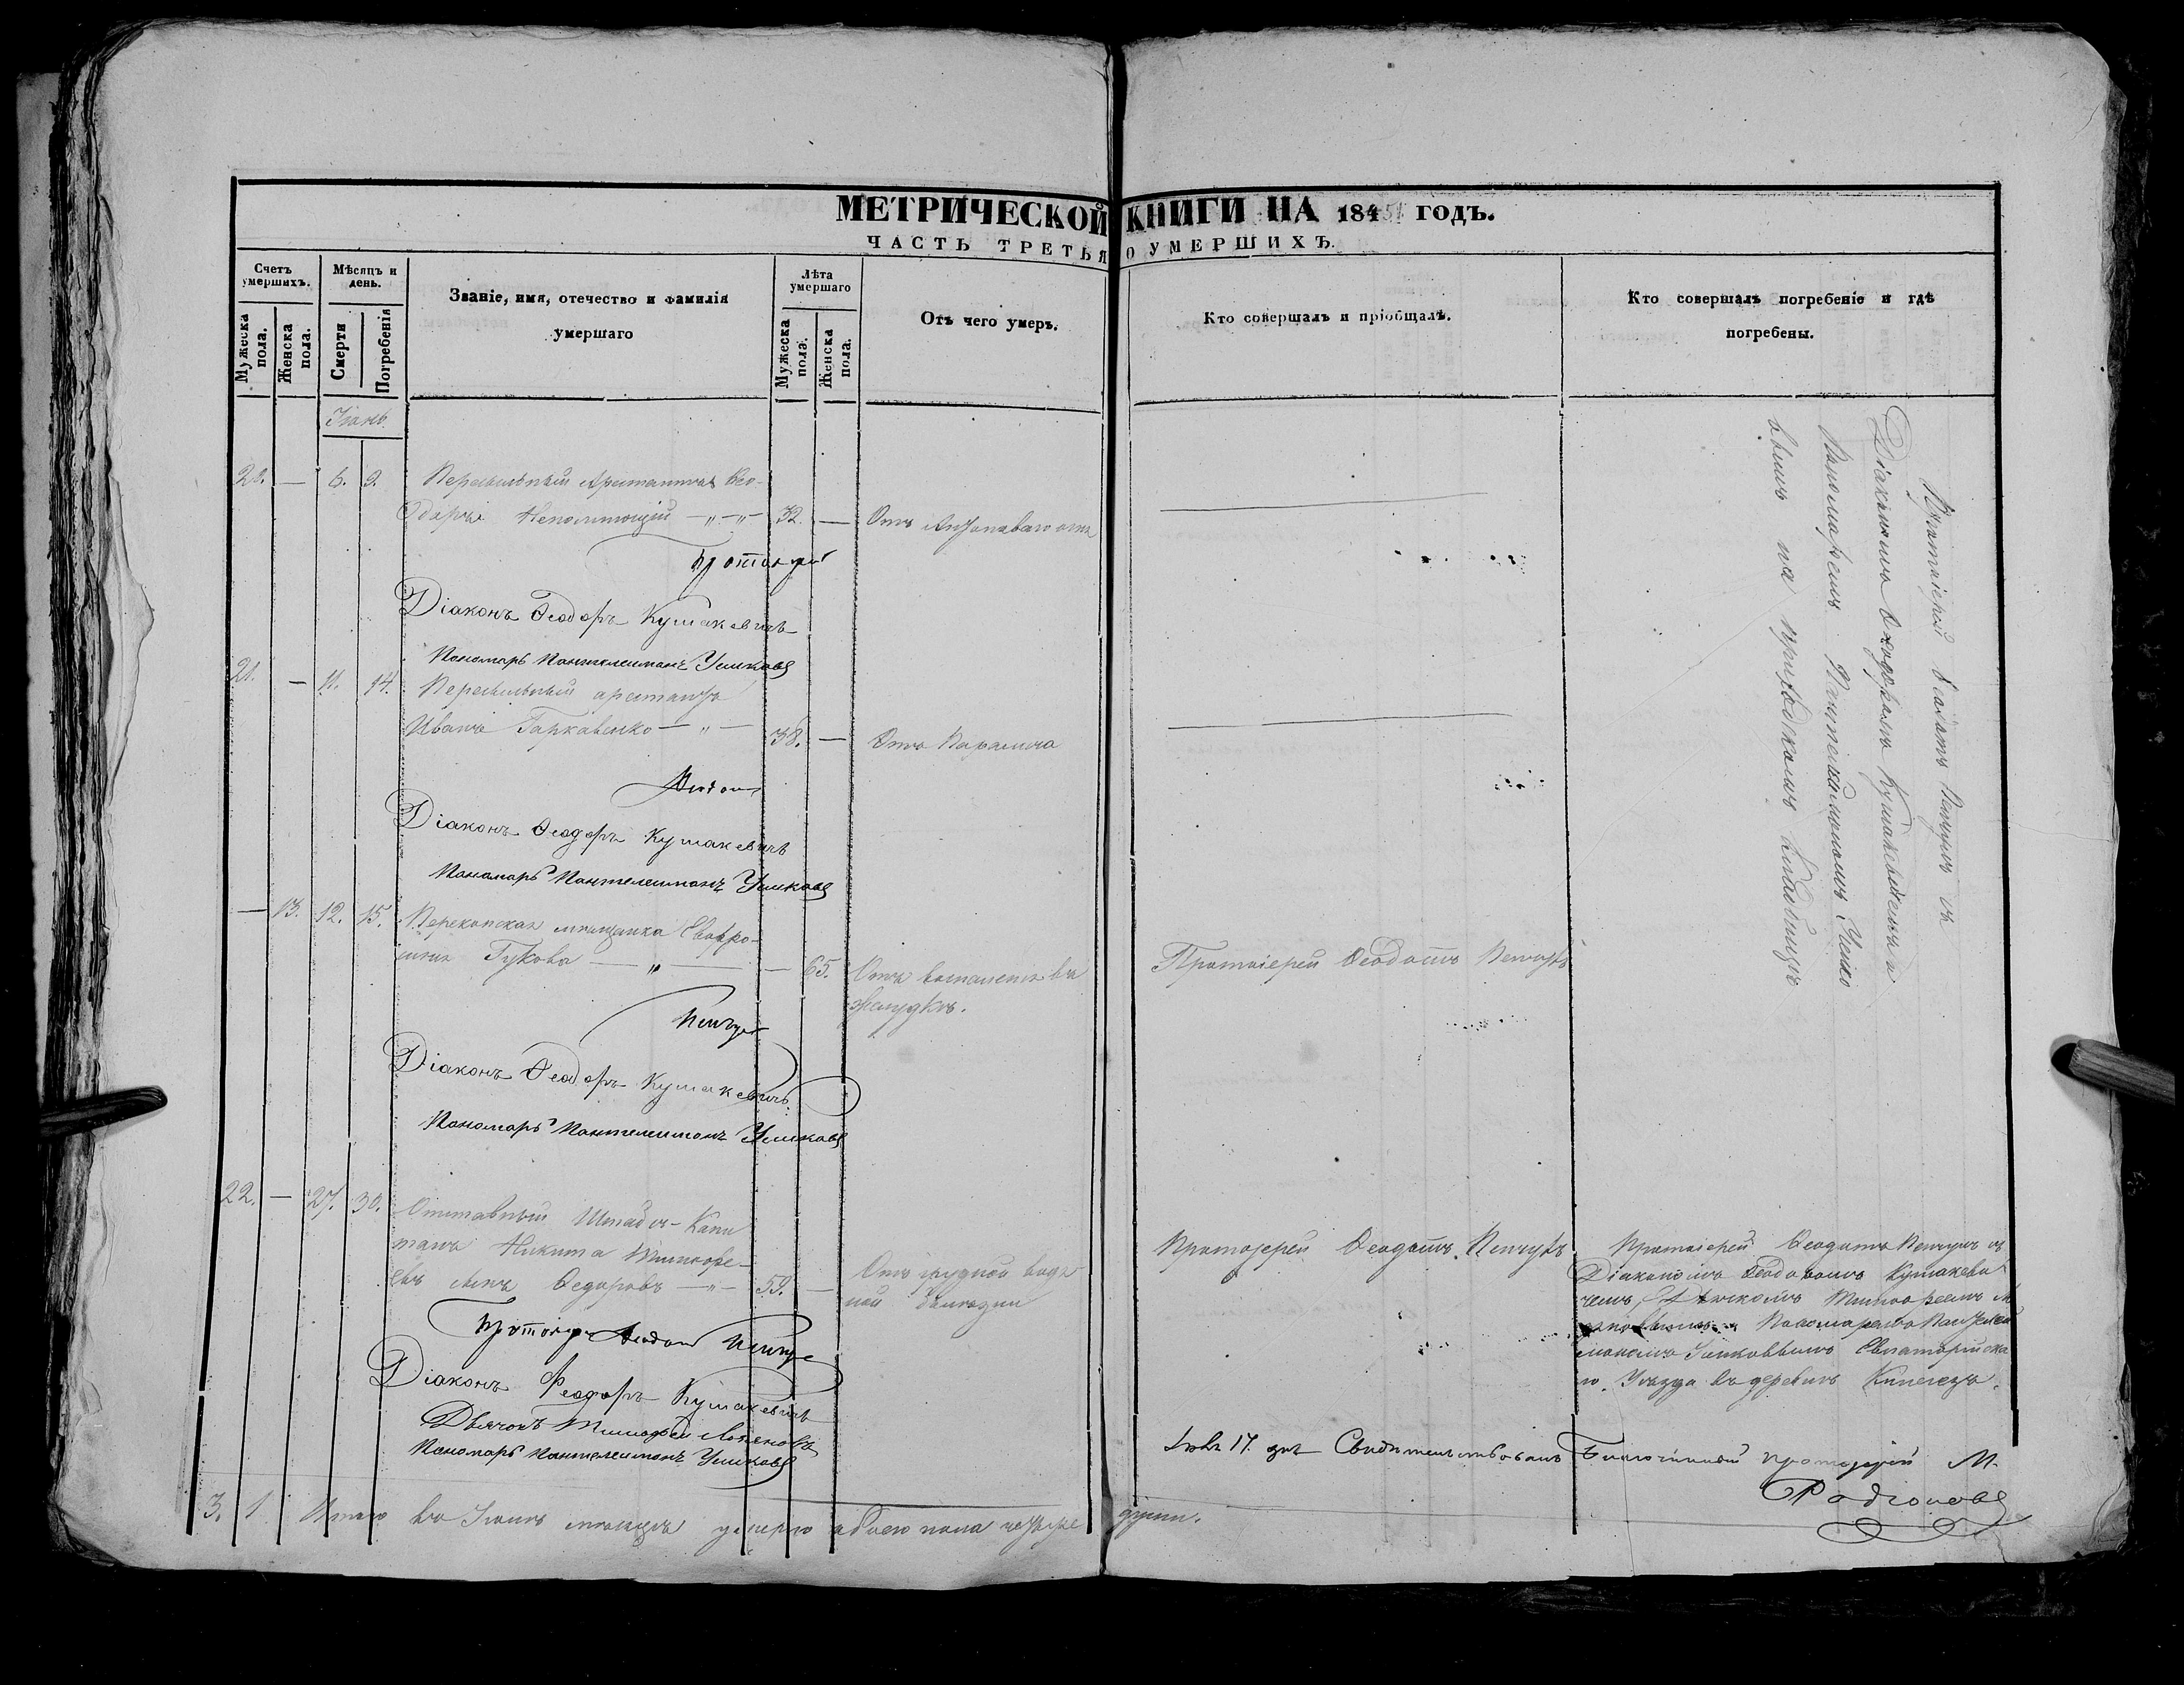 МЕТРИЧЕСКОЙ КНИГИ НА 1845 ГОДЪ.
ЧАСТЬ ТРЕТЬЯ О УМЕРШИХЪ.
Счетъ умершихъ.
Мужеска пола.
Женска пола.
Мѣсяцъ и день.
Смерти
Погребенія
Званіе, имя, отечество и фамилія
умершаго
Лѣта умершаго
Мужеска пола.
Женска пола.
Отъ чего умеръ.
Кто совершалъ и пріобщалъ.
Кто совершалъ погребеніе и гдѣ
погребены.
Іюнь
20. — 6. 9. Пересыльный Арестантъ Ѳео-
доръ Непомнющій — „ — „ — 32. — Отъ Антонаваго огня
Протоіерей
Діаконъ Ѳеодоръ Кушакевичъ
Пономарь Пантелеимонъ Ушковъ
21. — 11. 14. Пересыльный арестантъ
Иванъ Гаркавенко — „ — 38. — Отъ Паралича
Ѳеодот
Діаконъ Ѳеодоръ Кушакевичъ
Пономарь Пантелеимонъ Ушковъ
— 13. 12. 15. Перекопская мещанка Евфро-
синія Гукова — „ — — 65. Отъ воспаленія въ
желудкѣ.
Протоіерей Ѳеодотъ
Діаконъ Ѳеодоръ Кушакевичъ
Пономарь Пантелеимонъ Ушковъ
Протоіерей Ѳеодотъ съ
Діакономъ Ѳеодоромъ Кушакевичемъ и
Пономаремъ Пантелеимономъ Ушко
вымъ на приходскомъ кладбищѣ
22. — 27. 30. Отставный Штабсъ-Капи
танъ Никита Тимофе-
евъ сынъ Ѳедоровъ — „ — 59. — Отъ грудной водя
ной болѣзни
Протоіерей Ѳеодотъ
Протоіерей Ѳеодотъ съ
Діакономъ Ѳеодоромъ Кушакеви
чемъ, Дьячкомъ Тимофеемъ
Пономаремъ Пантелеи
мономъ Ушковымъ Евпаторійска
го Уѣзда въ деревнѣ
Протоіерей Ѳеодот
Діаконъ Ѳеодоръ Кушакевичъ
Дьячокъ Тимофей
Пономарь Пантелеимонъ Ушковъ
17. дня Свидѣтельствовалъ Благочинный протоіерей М.
Родіоновъ
3. 1 Итого въ Іюнѣ мѣсяцѣ умерло обоего пола четыре души.